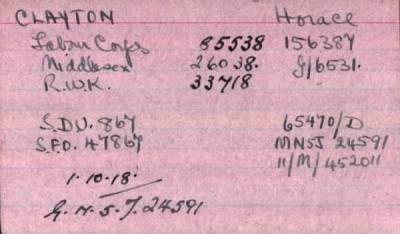 CLAYTON Horace
Labour Corps 85538 156387
Middlesex 26038. G/6531.
R.W.K. 33718
S.D.W. 867 65470/D
S.F.O. 47867 MNSJ 24591
11/M/452011
1.10.18.
G.N.S.J. 24591